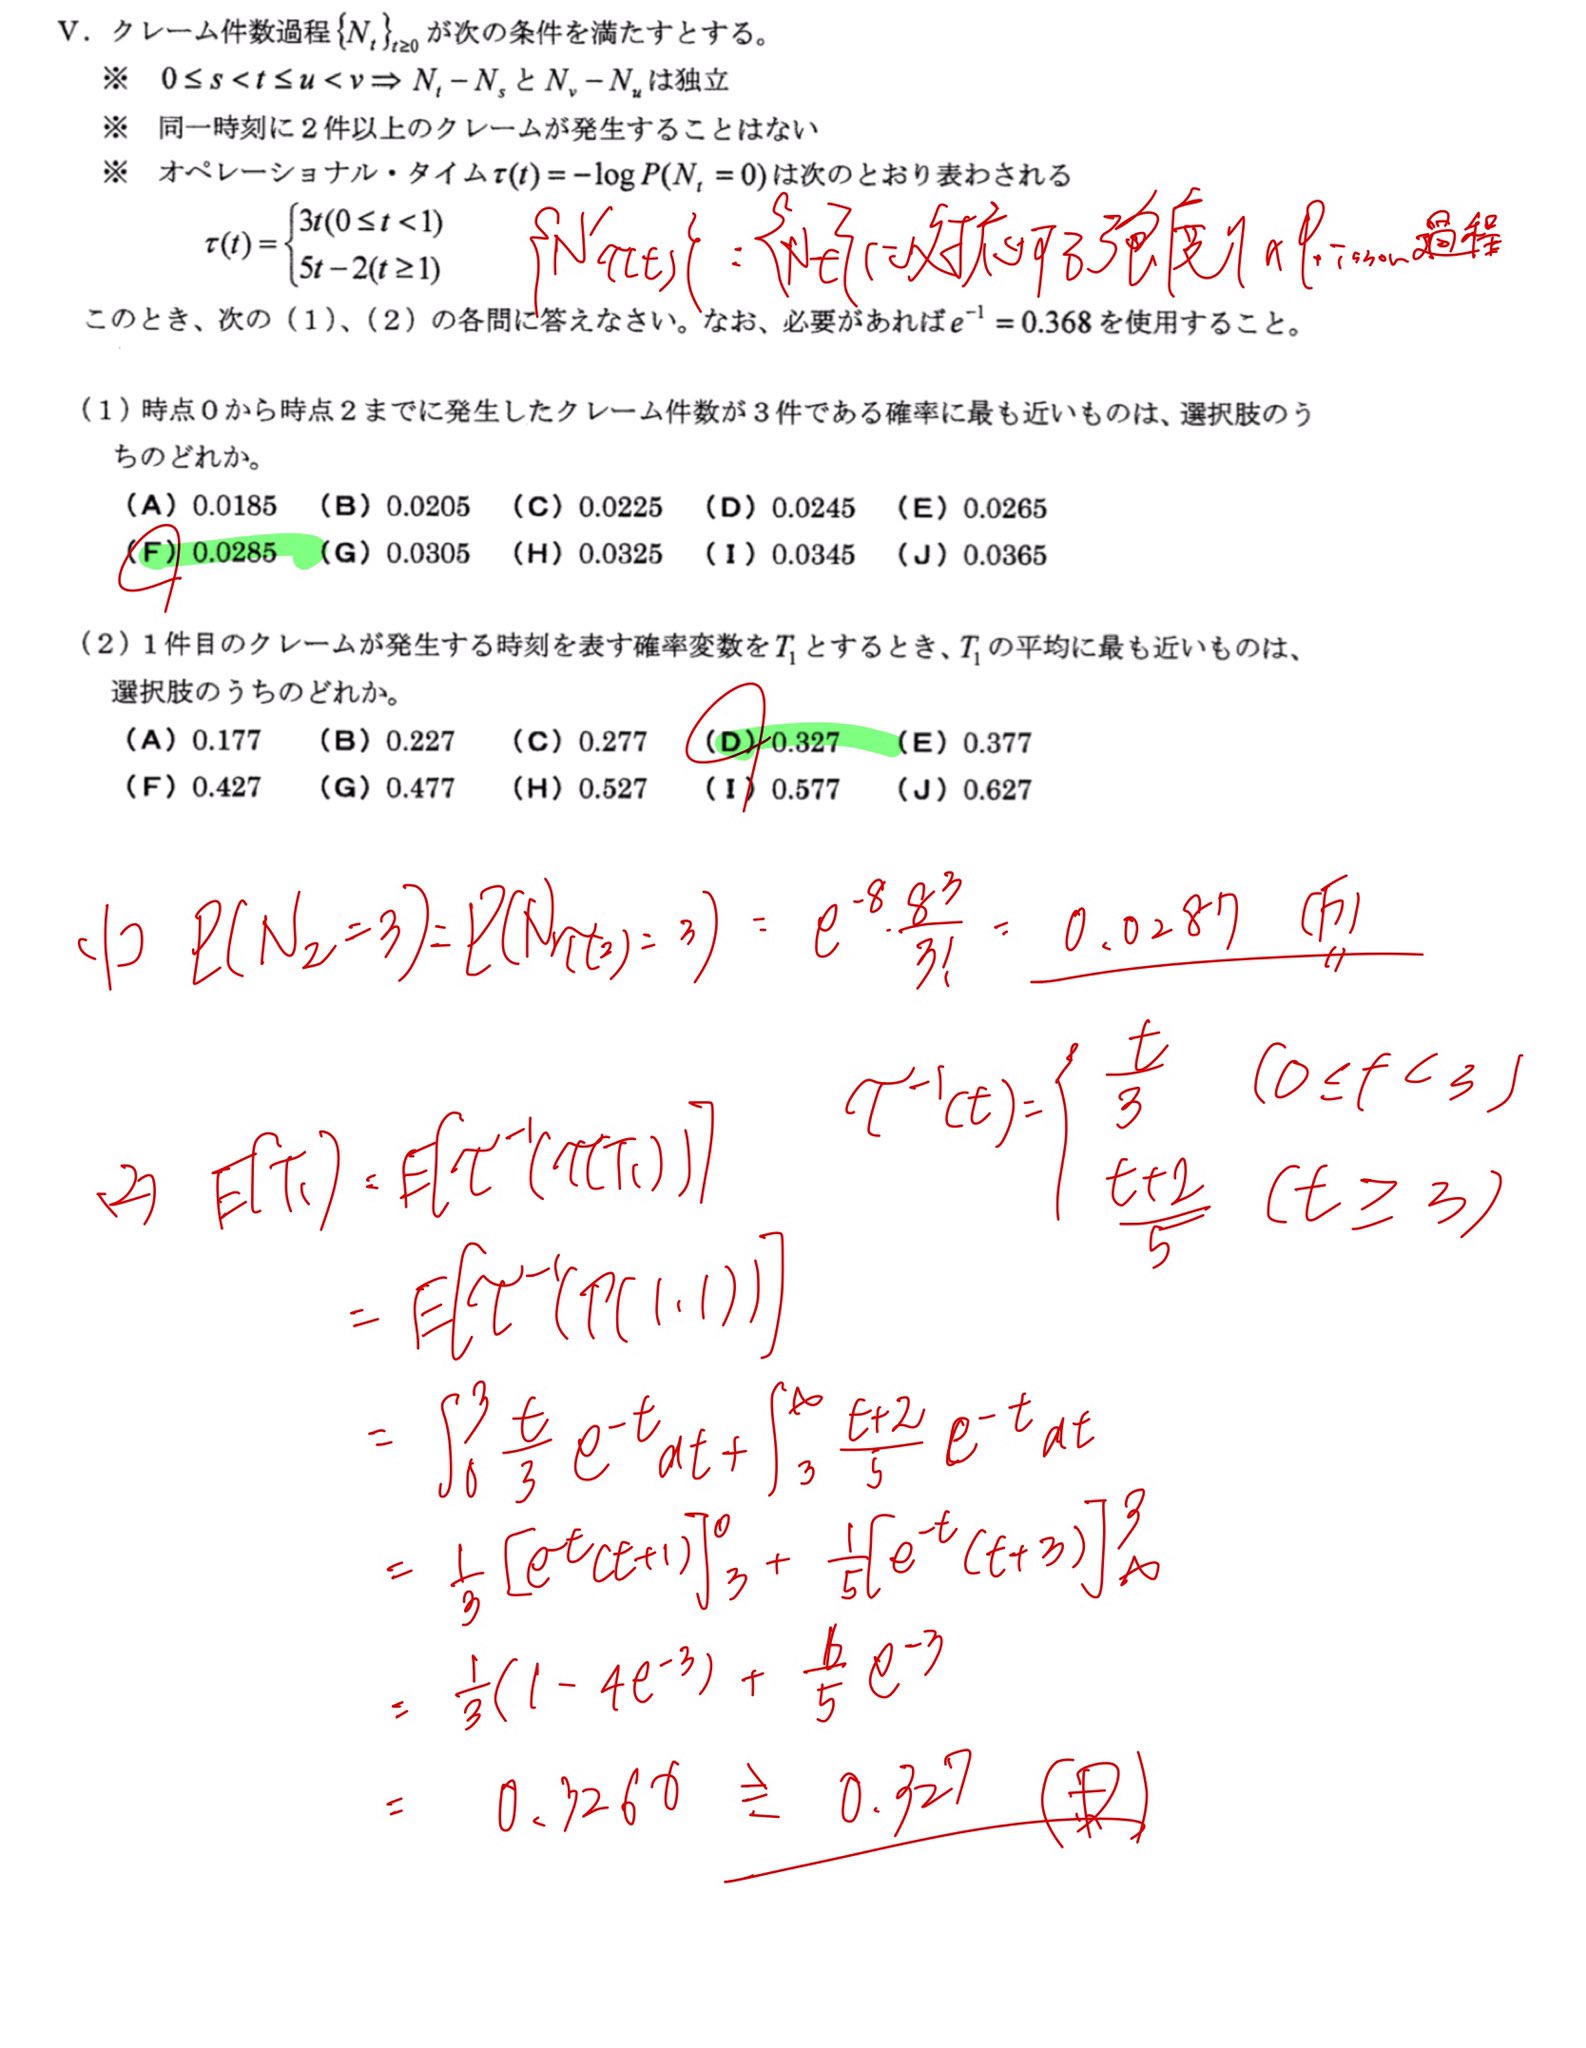 V．クレーム件数過程{N_t}_{t≥0}が次の条件を満たすとする。
※ 0≤s<t≤u<v⇒N_t−N_sとN_v−N_uは独立
※ 同一時刻に２件以上のクレームが発生することはない
※ オペレーショナル・タイムτ(t)=−logP(N_t=0)は次のとおり表わされる
τ(t)={3t(0≤t<1)
5t−2(t≥1)
{N'τ(t)}:={N_t}に対応する強度1のPoisson過程
このとき、次の（1）、（2）の各問に答えなさい。なお、必要があればe^{-1}=0.368を使用すること。
（1）時点０から時点２までに発生したクレーム件数が３件である確率に最も近いものは、選択肢のう
ちのどれか。
（A）0.0185 （B）0.0205 （C）0.0225 （D）0.0245 （E）0.0265
（F）0.0285 （G）0.0305 （H）0.0325 （I）0.0345 （J）0.0365
（2）1件目のクレームが発生する時刻を表す確率変数をT_1とするとき、T_1の平均に最も近いものは、
選択肢のうちのどれか。
（A）0.177 （B）0.227 （C）0.277 （D）0.327 （E）0.377
（F）0.427 （G）0.477 （H）0.527 （I）0.577 （J）0.627
(1) P(N_2=3)=P(N_{τ(t_2)}=3)=e^{-8}·8^3/3!=0.0287 (F)
τ^{-1}(t)={t/3 (0≤t<3)
(t+2)/5 (t≥3)
(2) E(T_1)=E[τ^{-1}(τ(T_1))]
=E[τ^{-1}(Γ(1.1))]
=∫_0^3 t/3 e^{-t}dt+∫_3^∞ (t+2)/5 e^{-t}dt
=1/3[e^{-t}(t+1)]_3^0+1/5[e^{-t}(t+3)]_∞^3
=1/3(1-4e^{-3})+6/5 e^{-3}
=0.3266≒0.327 (D)